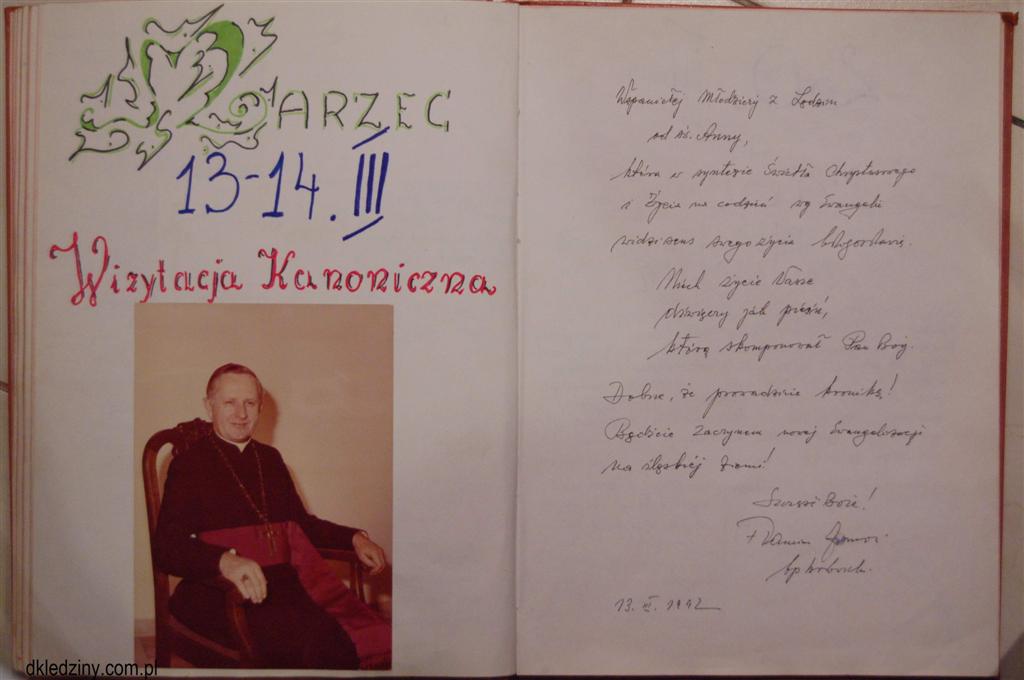 MARZEC
13-14. III
Wizytacja Kanoniczna
Wspaniałej Młodzieży z Lędzin
od św. Anny,
która w syntezie Światła Chrystusowego
i Życia na codzień wg Ewangelii
widzi sens swego życia błogosławię.
Niech życie Wasze
dźwięczy jak pieśń,
którą skomponował Pan Bóg.
Dobrze, że prowadzicie kronikę!
Bądźcie zaczynem nowej Ewangelizacji
na śląskiej ziemi!
Szczęść Boże!
+ Damian
13. III. 1992
dkledziny.com.pl